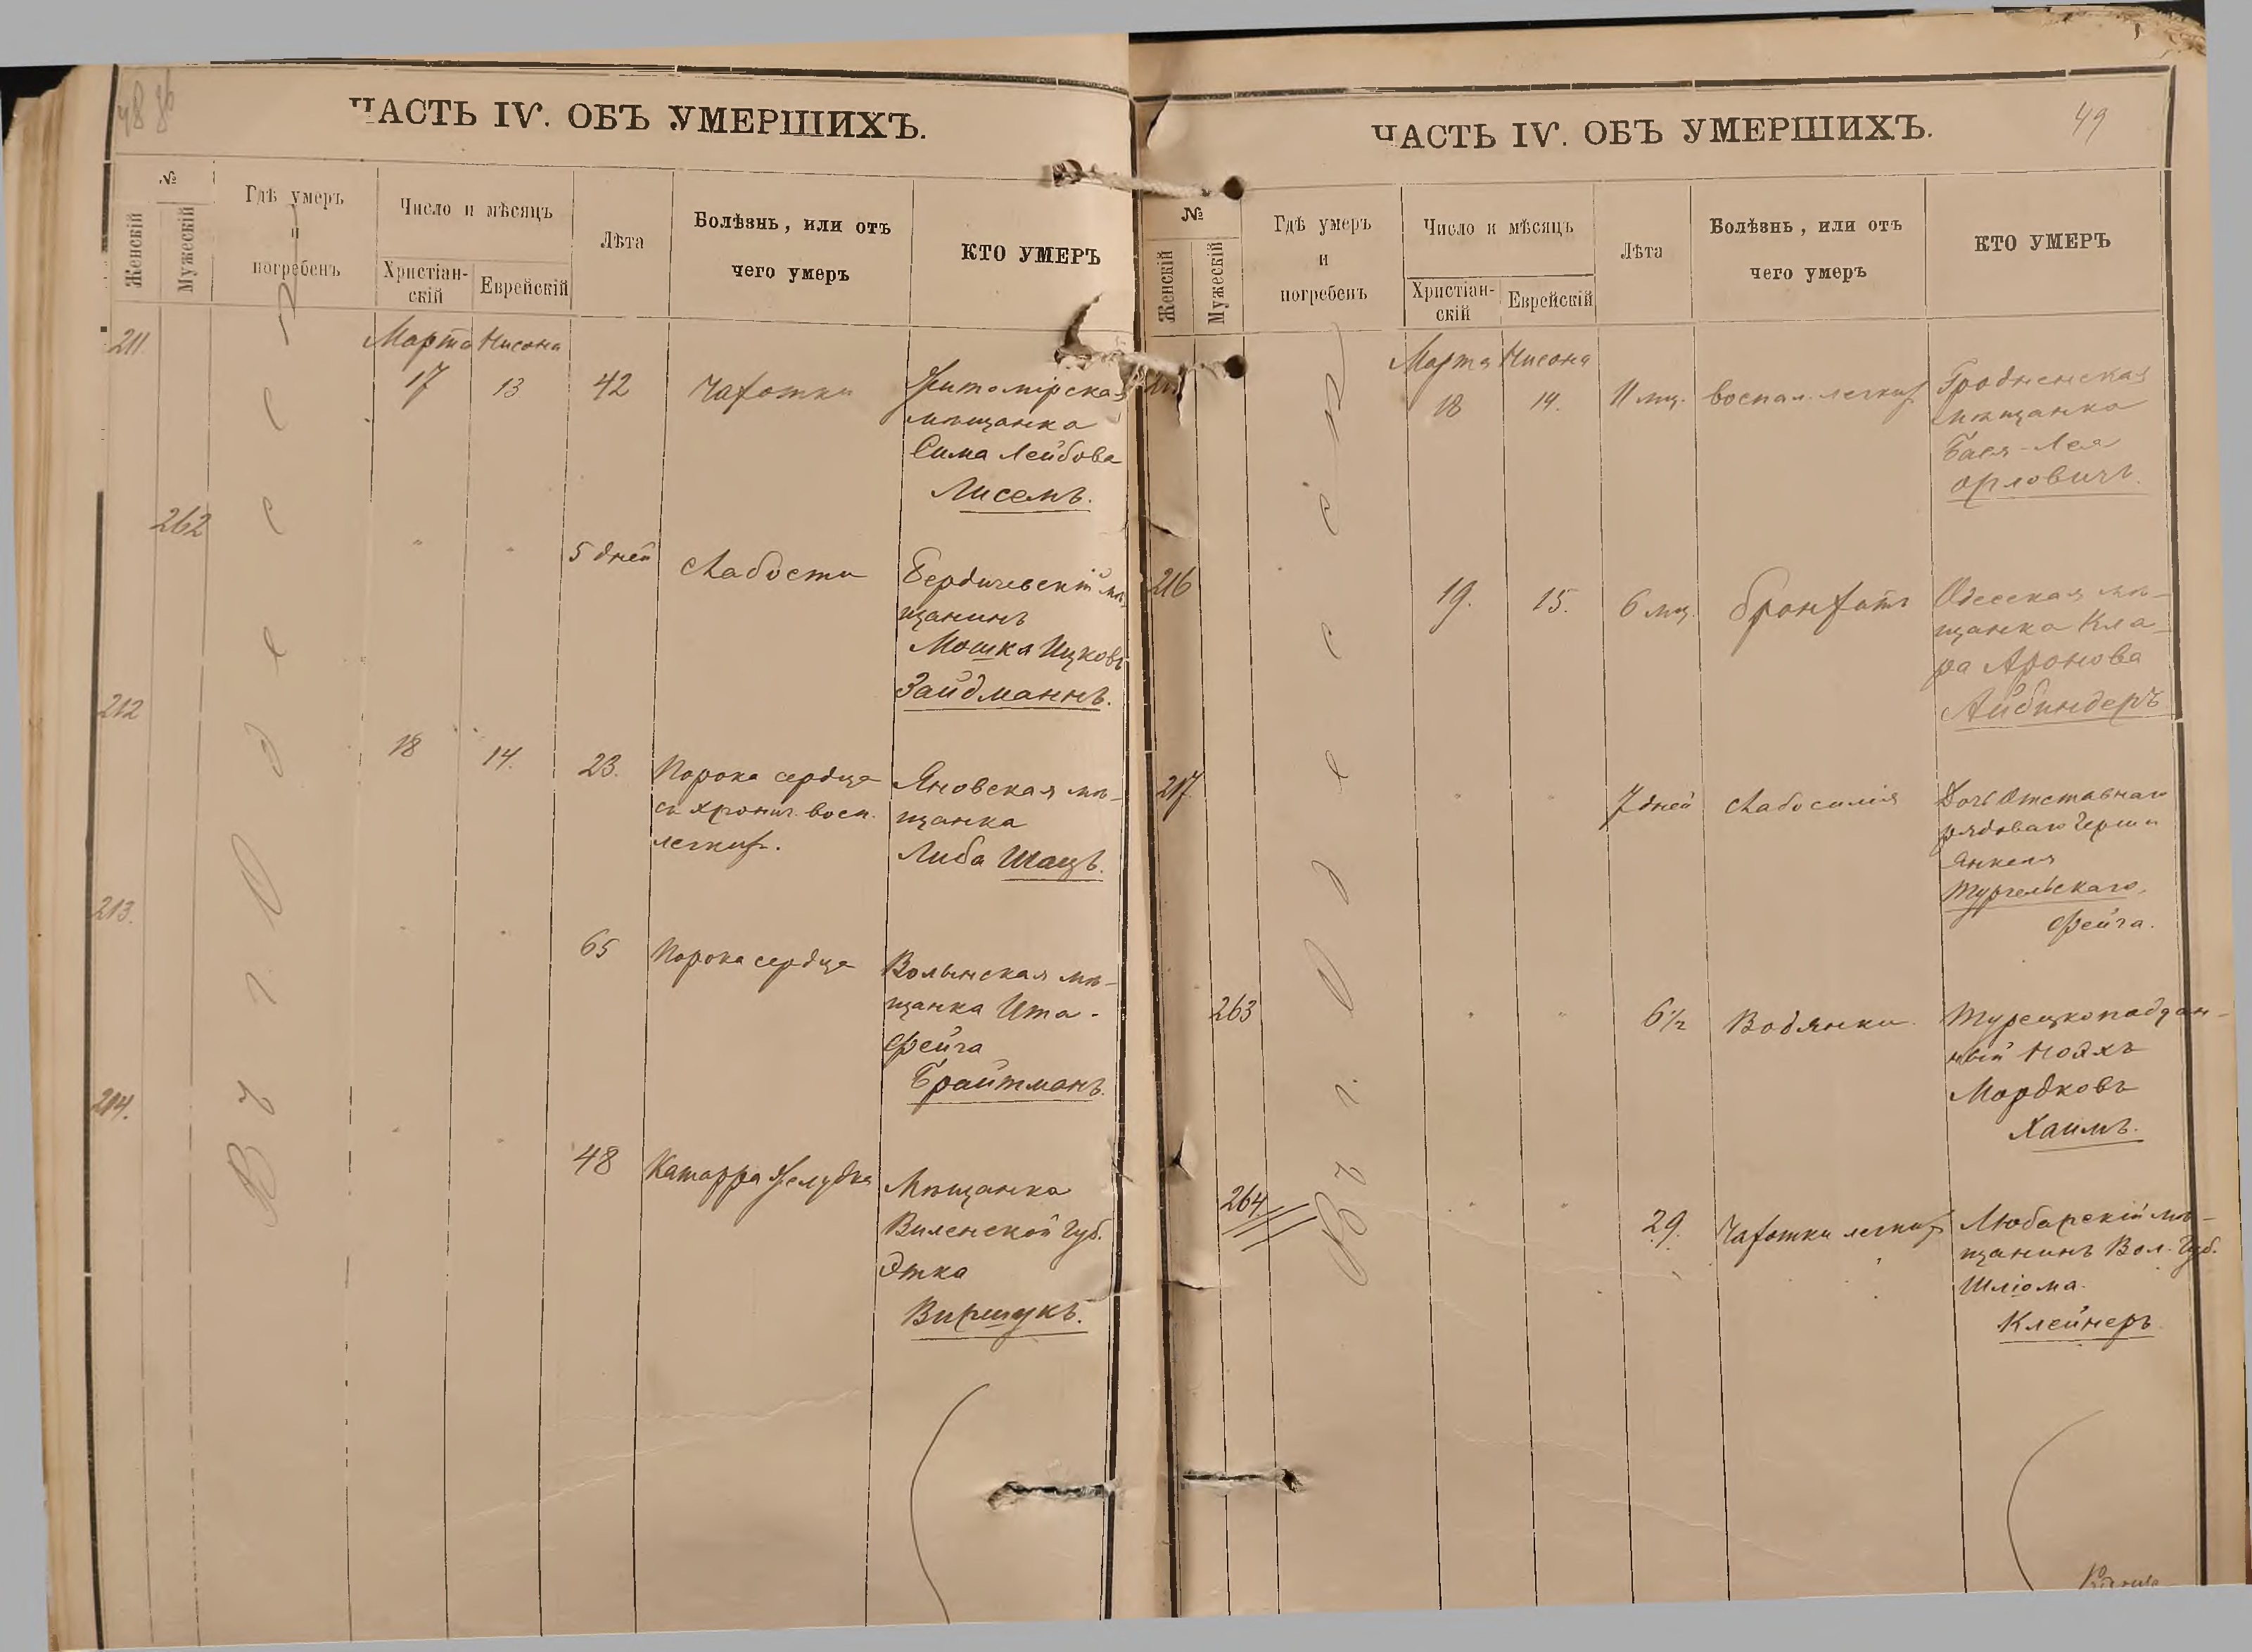 48 86
ЧАСТЬ IV. ОБЪ УМЕРШИХЪ.
№
Женскій
Мужескій
Гдѣ умеръ
и
погребенъ
Число и мѣсяцъ
Христіан-
скій
Еврейскій
Лѣта
Болѣзнь, или отъ
чего умеръ
КТО УМЕРЪ
Въ г. Одессѣ
211.
Марта Нисона
17 13 42 Чахотки Житомірская
мѣщанка
Сима Лейбова
Лисемъ.
262
" " 5 дней Слабости Бердичевскій мѣ-
щанинъ
Мошка Ицковъ
Зайдманнъ.
212
18 14. 23. Порока сердца Яновская мѣ-
съ хронич. восп. щанка
легких. Либа Шацъ.
213.
" " 65 Порока сердца Волынская мѣ-
щанка Ита-
Фейга
Брайтманъ.
214.
" " 48 Катарра желудка Мѣщанка
Виленской Губ.
Этка
Виршукъ.
49
ЧАСТЬ IV. ОБЪ УМЕРШИХЪ.
№
Женскій
Мужескій
Гдѣ умеръ
и
погребенъ
Число и мѣсяцъ
Христіан-
скій
Еврейскій
Лѣта
Болѣзнь, или отъ
чего умеръ
КТО УМЕРЪ
Въ г. Одессѣ
Марта Нисона
18 14. 11 мц. воспал. легких Гродненская
мѣщанка
Бася-Лея
Орловичъ.
216
19. 15. 6 мц. бронхит Одесская мѣ-
щанка Кла-
ра Аронова
Айбиндеръ
217.
" " 7 дней Слабосилія Дочь Отставнаго
рядоваго Герши
Янкеля
Тургельскаго,
Фейга.
263
" " 6½ Водянки Турецкоподдан-
ный Нояхъ
Мордковъ
Хаимъ.
264.
" " 29. Чахотки легких Любарскій мѣ-
щанинъ Вол. Губ.
Шліома.
Клейнеръ